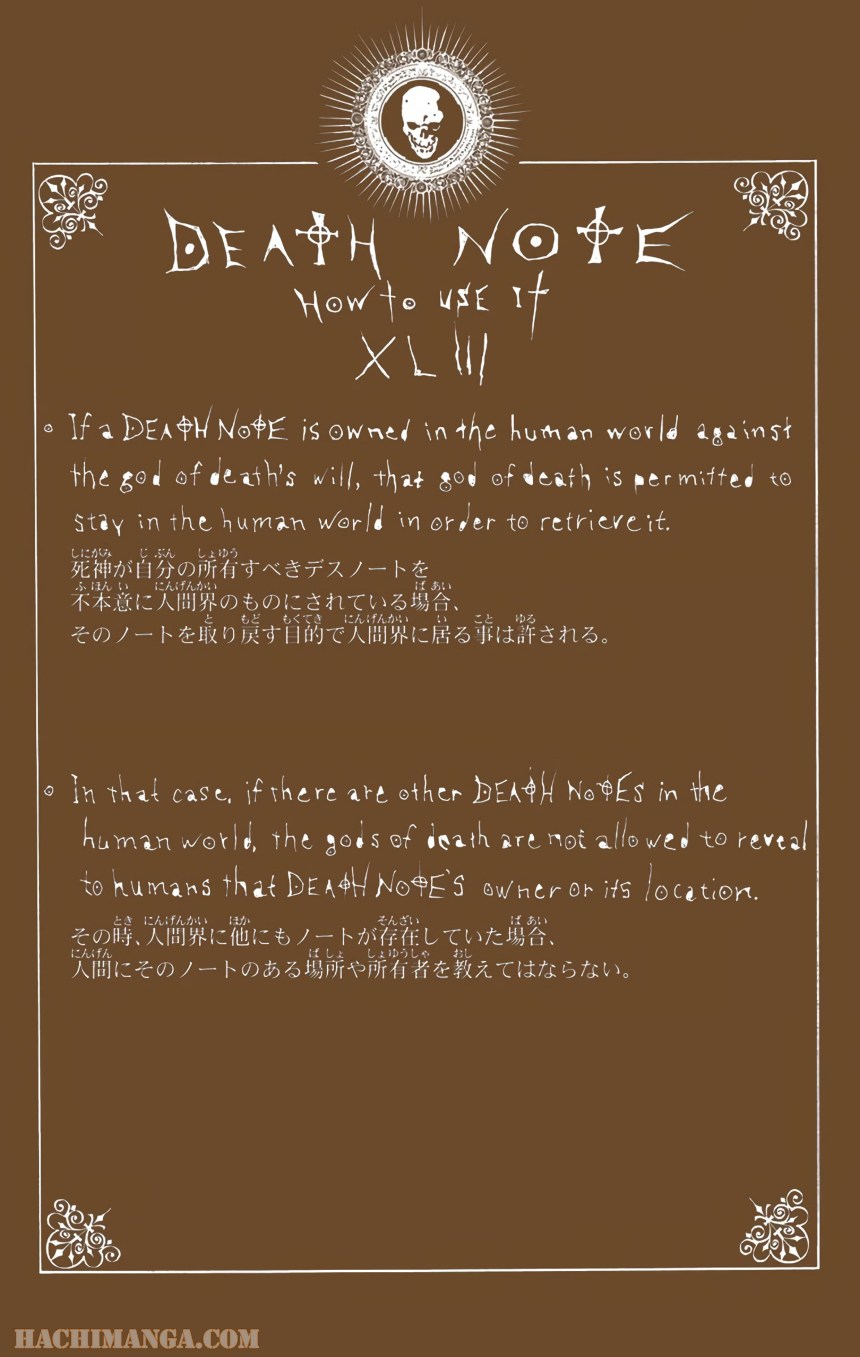 DEATH NOTE
HOW to USE It
XLIII
If a DEATH NOTE is owned in the human world against
the god of death's will, that god of death is permitted to
stay in the human world in order to retrieve it.
死神が自分の所有すべきデスノートを
不本意に人間界のものにされている場合、
そのノートを取り戻す目的で人間界に居る事は許される。
In that case, if there are other DEATH NOTEs in the
human world, the gods of death are not allowed to reveal
to humans that DEATH NOTE'S owner or its location.
その時、人間界に他にもノートが存在していた場合、
人間にそのノートのある場所や所有者を教えてはならない。
HACHIMANGA.COM